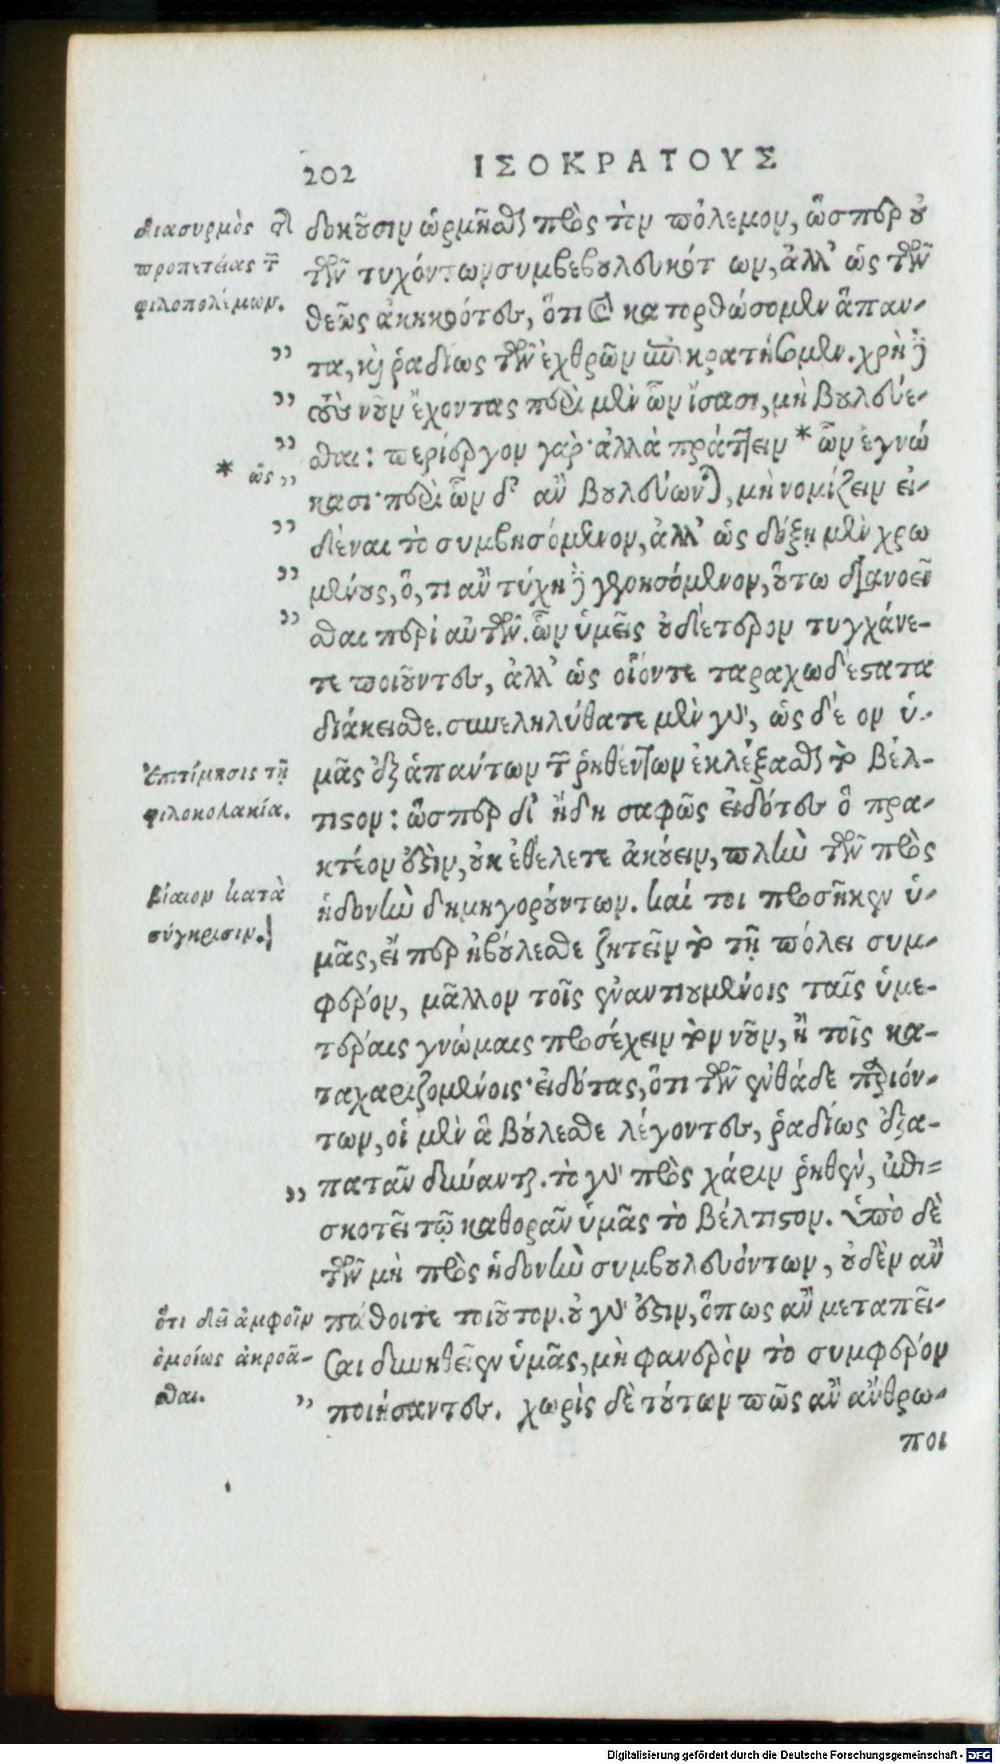 202 ΙΣΟΚΡΑΤΟΥΣ
διασυρμὸς
προπετείας τῶν
φιλοπολέμων.
δοκοῦσιν ὡρμῆσθαι πρὸς τὸν πόλεμον, ὥσπερ οὐ
τῶν τυχόντων συμβεβουλευκότ ων, ἀλλ' ὡς τῶν
θεῶν ἀκηκοότες, ὅτι καὶ κατορθώσομεν ἅπαν-
„ τα, καὶ ῥαδίως τῶν ἐχθρῶν ἐπικρατήσομεν. χρὴ δὲ
„ τοὺς νοῦν ἔχοντας περὶ μὲν ὧν ἴσασι, μὴ βουλεύε-
„ σθαι: περίεργον γάρ· ἀλλὰ πράττειν * ὧν ἐγνώ
* ὡς „ κασι· περὶ ὧν δ' ἂν βουλεύωνται, μὴ νομίζειν εἰ-
„ δέναι τὸ συμβησόμενον, ἀλλ' ὡς δόξῃ μὲν χρω
„ μένους, ὅ, τι ἂν τύχῃ δὲ γενησόμενον, οὕτω διανοεῖ
„ σθαι περὶ αὐτῶν. ὧν ὑμεῖς οὐδέτερον τυγχάνε-
τε ποιοῦντες, ἀλλ' ὡς οἷόντε ταραχωδέστατα
διάκεισθε. συνεληλύθατε μὲν γὰρ, ὡς δέ ον ὑ-
Ἐπιτίμησις τῇ
φιλοκολακίᾳ.
μᾶς ἐξ ἁπάντων τῶν ῥηθέντων ἐκλέξασθαι τὸ βέλ-
τιστον: ὥσπερ δ' ἤδη σαφῶς εἰδότες ὃ πρα-
κτέον ἐστὶν, οὐκ ἐθέλετε ἀκούειν, πλὴν τῶν πρὸς
βίαιον κατὰ
σύγκρισιν.
ἡδονὴν δημηγορούντων. καί τοι προσῆκεν ὑ-
μᾶς, εἴ περ ἠβούλεσθε ζητεῖν τὸ τῇ πόλει συμ-
φέρον, μᾶλλον τοῖς ἐναντιουμένοις ταῖς ὑμε-
τέραις γνώμαις προσέχειν τὸν νοῦν, ἢ τοῖς κα-
ταχαριζομένοις· εἰδότας, ὅτι τῶν ἐνθάδε παριόν-
των, οἱ μὲν ἃ βούλεσθε λέγοντες, ῥαδίως ἐξα-
„ πατᾶν δύνανται. τὸ γὰρ πρὸς χάριν ῥηθὲν, ἐπι-
σκοτεῖ τῷ καθορᾶν ὑμᾶς τὸ βέλτιστον. Ὑπὸ δὲ
τῶν μὴ πρὸς ἡδονὴν συμβουλευόντων, οὐδὲν ἂν
ὅτι δεῖ ἀμφοῖν
ὁμοίως ἀκροᾶ-
σθαι.
πάθοιτε τοιοῦτον. οὐ γὰρ ἔστιν, ὅπως ἂν μεταπεῖ-
σαι δυνηθεῖεν ὑμᾶς, μὴ φανερὸν τὸ συμφέρον
„ ποιήσαντες. χωρὶς δὲ τούτων πῶς ἂν ἄνθρω-
ποι
Digitalisierung gefördert durch die Deutsche Forschungsgemeinschaft - DFG